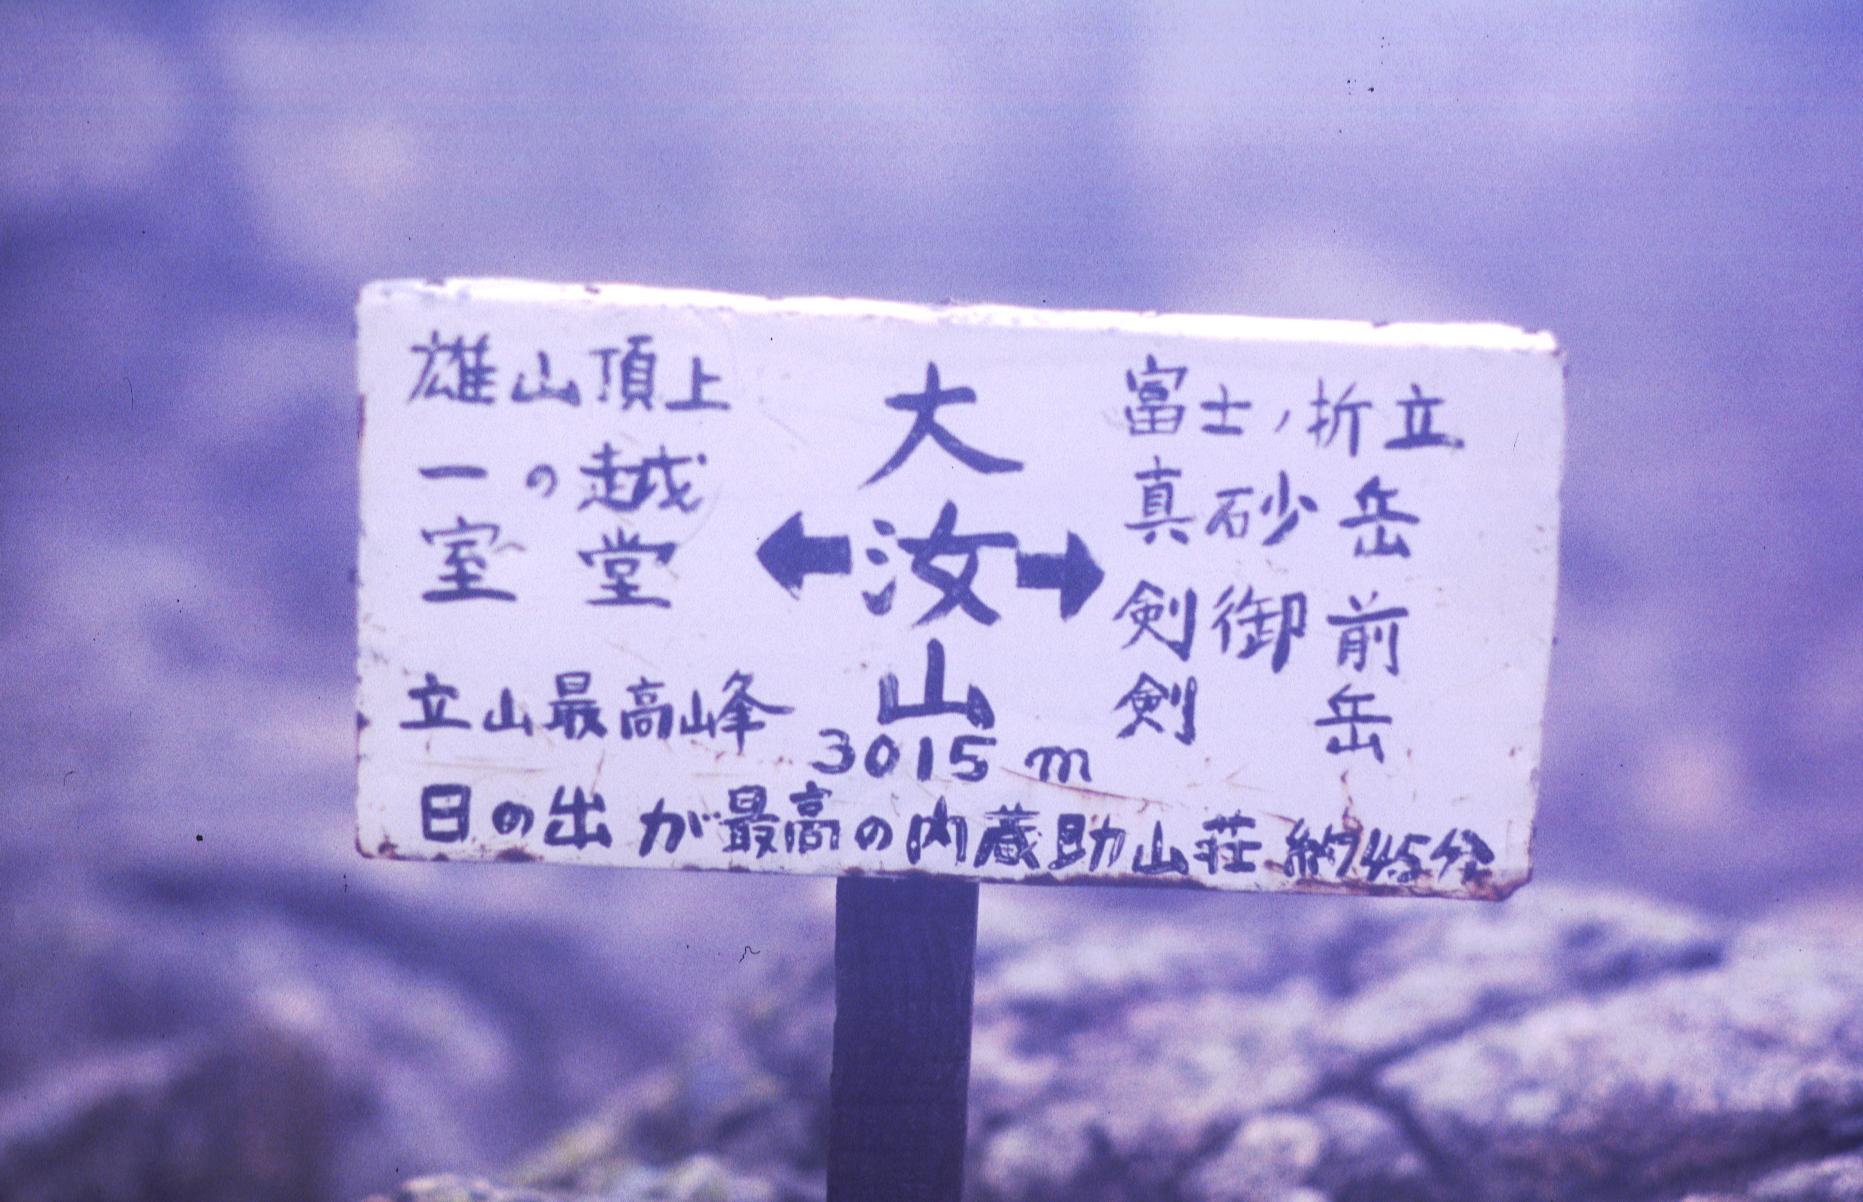 雄山頂上
一の越
室堂
立山最高峰
大汝山
3015m
富士ノ折立
真砂岳
剣御前
剣岳
日の出が最高の内蔵助山荘約45分